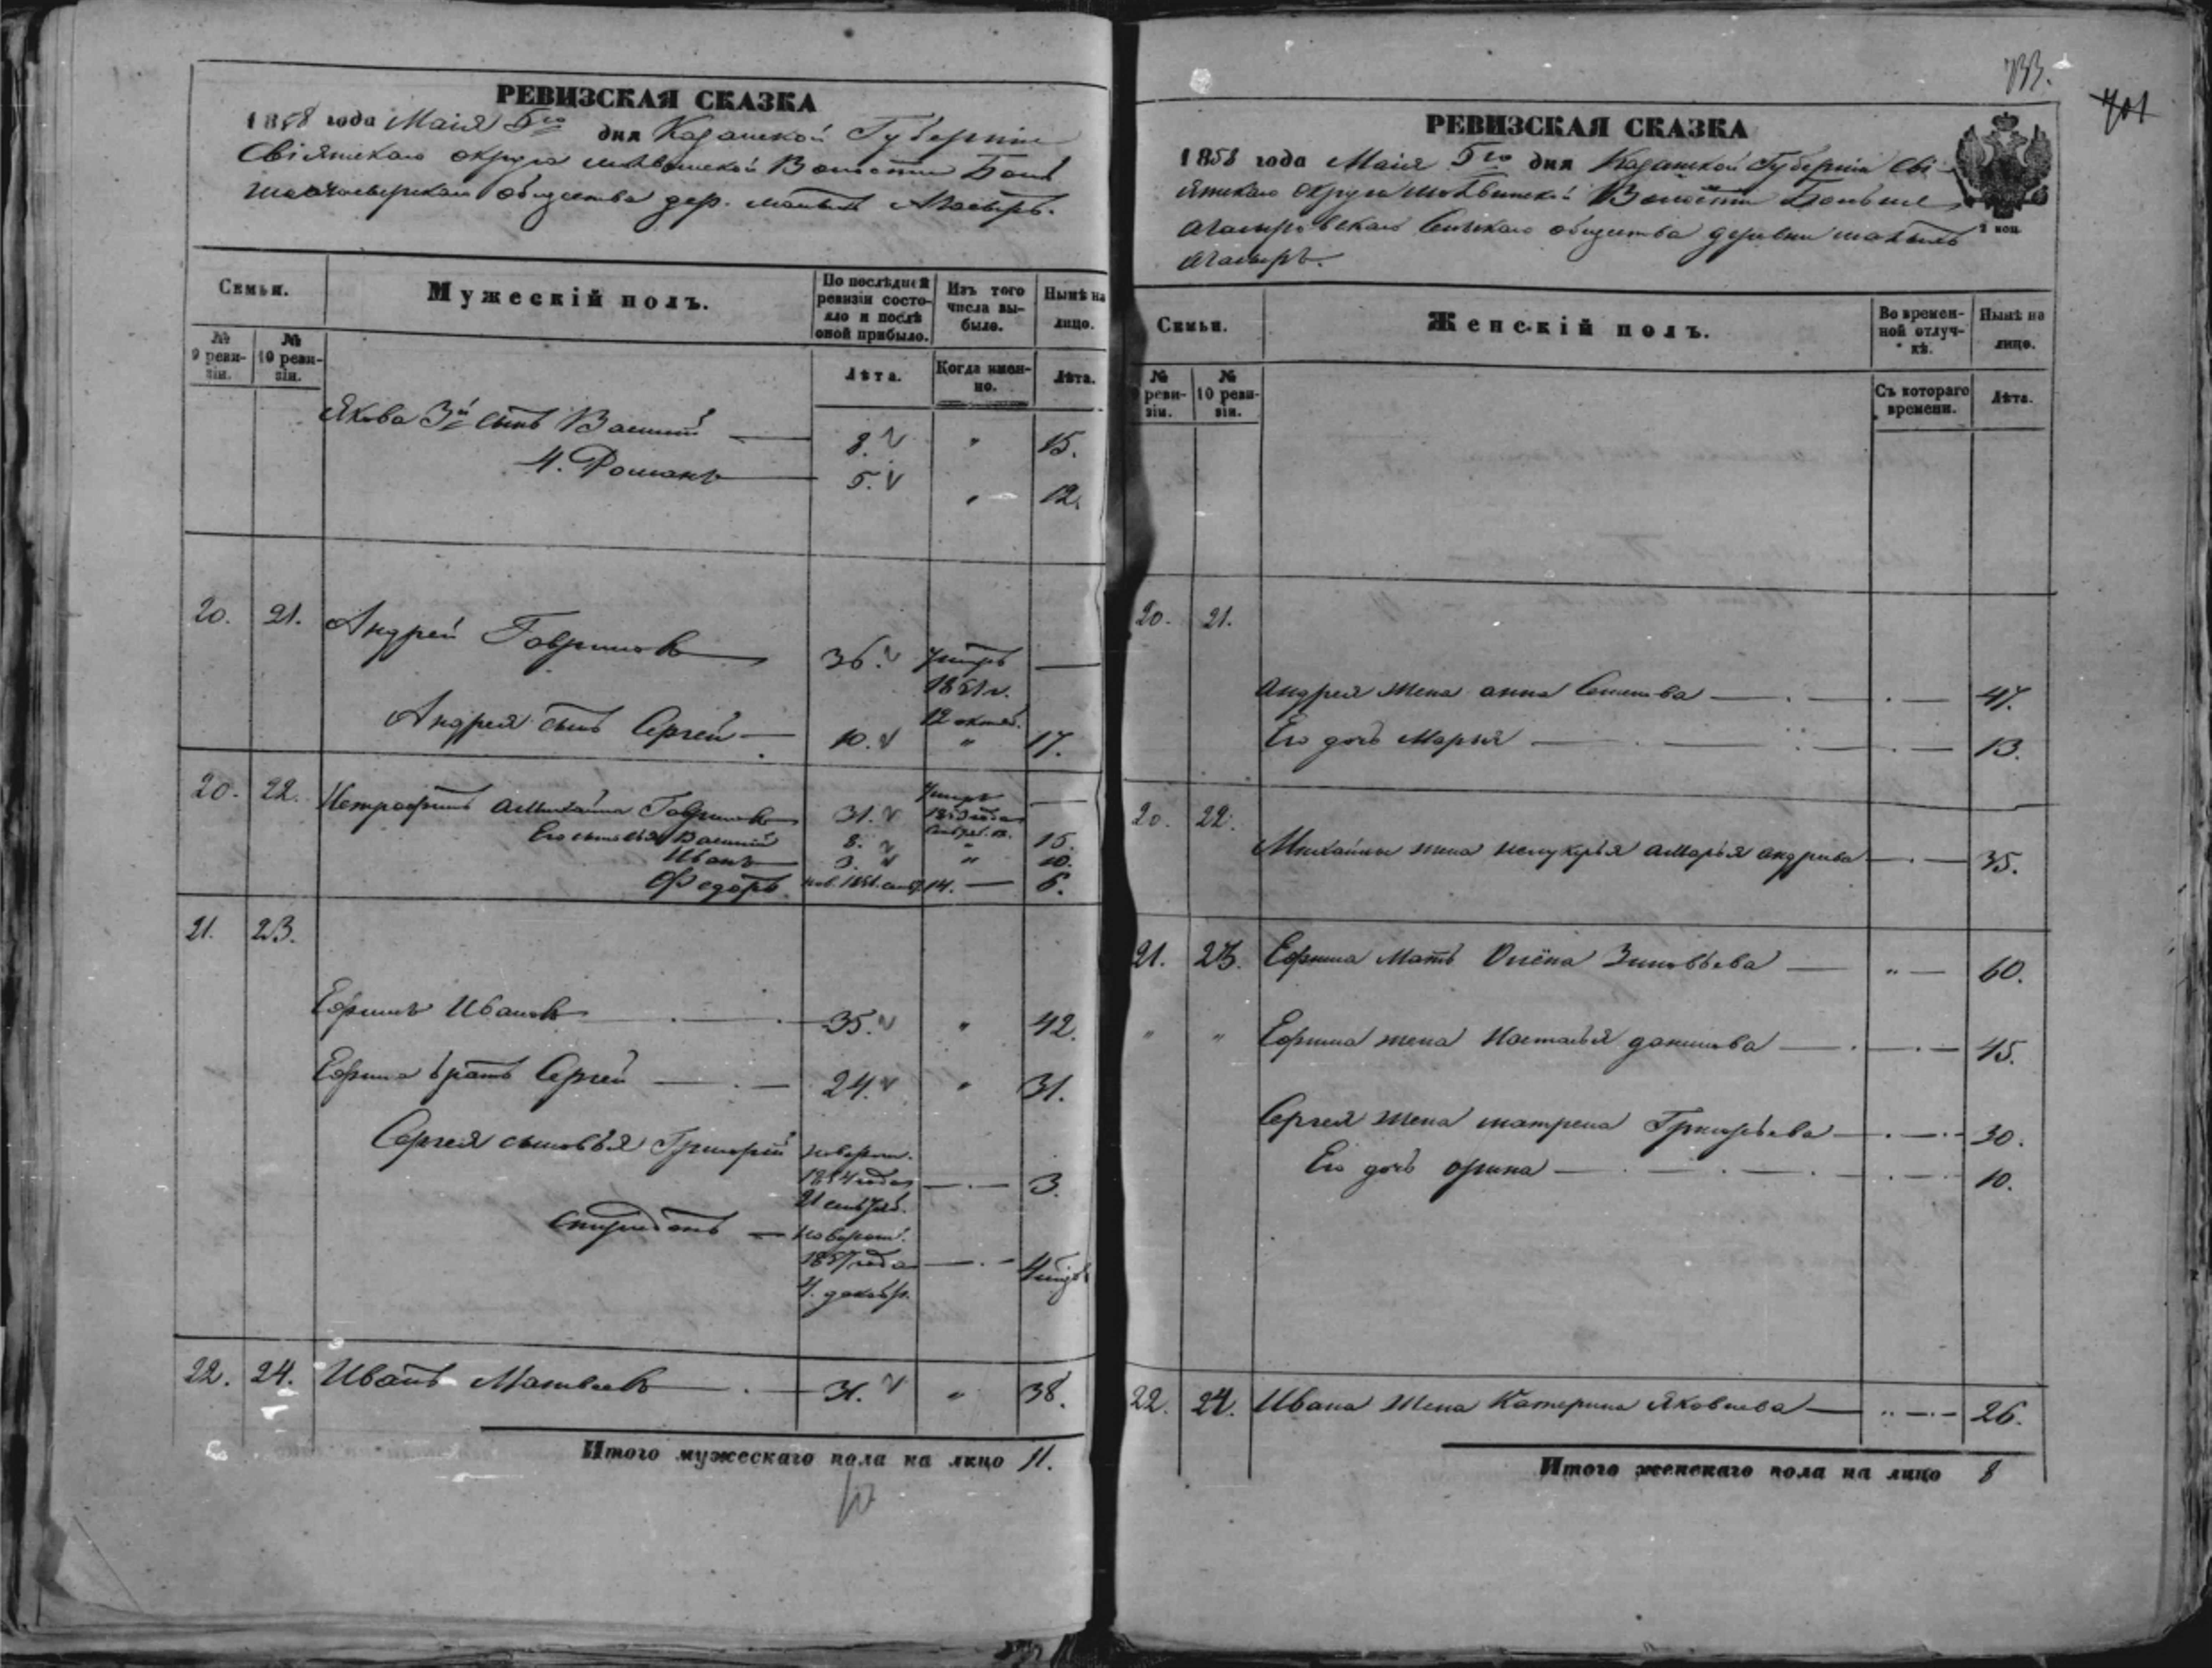 РЕВИЗСКАЯ СКАЗКА
1858 года Маія 5го дня Казанской Губерніи
Свіяжскаго округа Волости
общества дер.
Семьи.
Мужескій полъ.
По послѣдней ревизіи состояло и послѣ оной прибыло.
Изъ того числа выбыло.
Нынѣ на лицо.
№ 9 ревизіи.
№ 10 ревизіи.
Лѣта.
Когда именно.
Лѣта.
Якова 3й сынъ Василій 8. " 15.
4. Романъ 5. " 12.
20. 21. Андрей Гавриловъ 36. умеръ 1851 г. 12 октяб.
Андрея сынъ Сергей 10. " 17.
20. 22. Гавриловъ 31. умеръ 1853 года
Его сыновья Василій 8. " 15.
Иванъ 3. " 10.
Федоръ нов. 1851. 14. 6.
21. 23.
Ефимъ Ивановъ 35. " 42.
Ефима братъ Сергей 24. " 31.
Сергея сыновья Григорій новорож. 1854 года 21 сентяб. 3.
Спиридонъ новорож. 1857 года 4. декабр.
22. 24. Иванъ Матвеевъ 31. " 38.
Итого мужескаго пола на лицо 11.
733.
701
РЕВИЗСКАЯ СКАЗКА
1858 года Маія 5го дня Казанской Губерніи Сві-
яжскаго округа Волости
Сельскаго общества деревни
2 коп.
Семьи.
Женскій полъ.
Во временной отлучкѣ.
Нынѣ на лицо.
№ 9 ревизіи.
№ 10 ревизіи.
Съ котораго времени.
Лѣта.
20. 21.
Андрея жена анна Семенова 47.
Его дочь Марья 13.
20. 22.
Михайлы жена амарья андриева 35.
21. 23. Ефима мать Олёна Зиновьева " 60.
" " Ефима жена Настасья данилова 45.
Сергея жена матрена Григорьева 30.
Его дочь орина 10.
22. 24. Ивана жена Катерина Яковлева " 26.
Итого женскаго пола на лицо 8